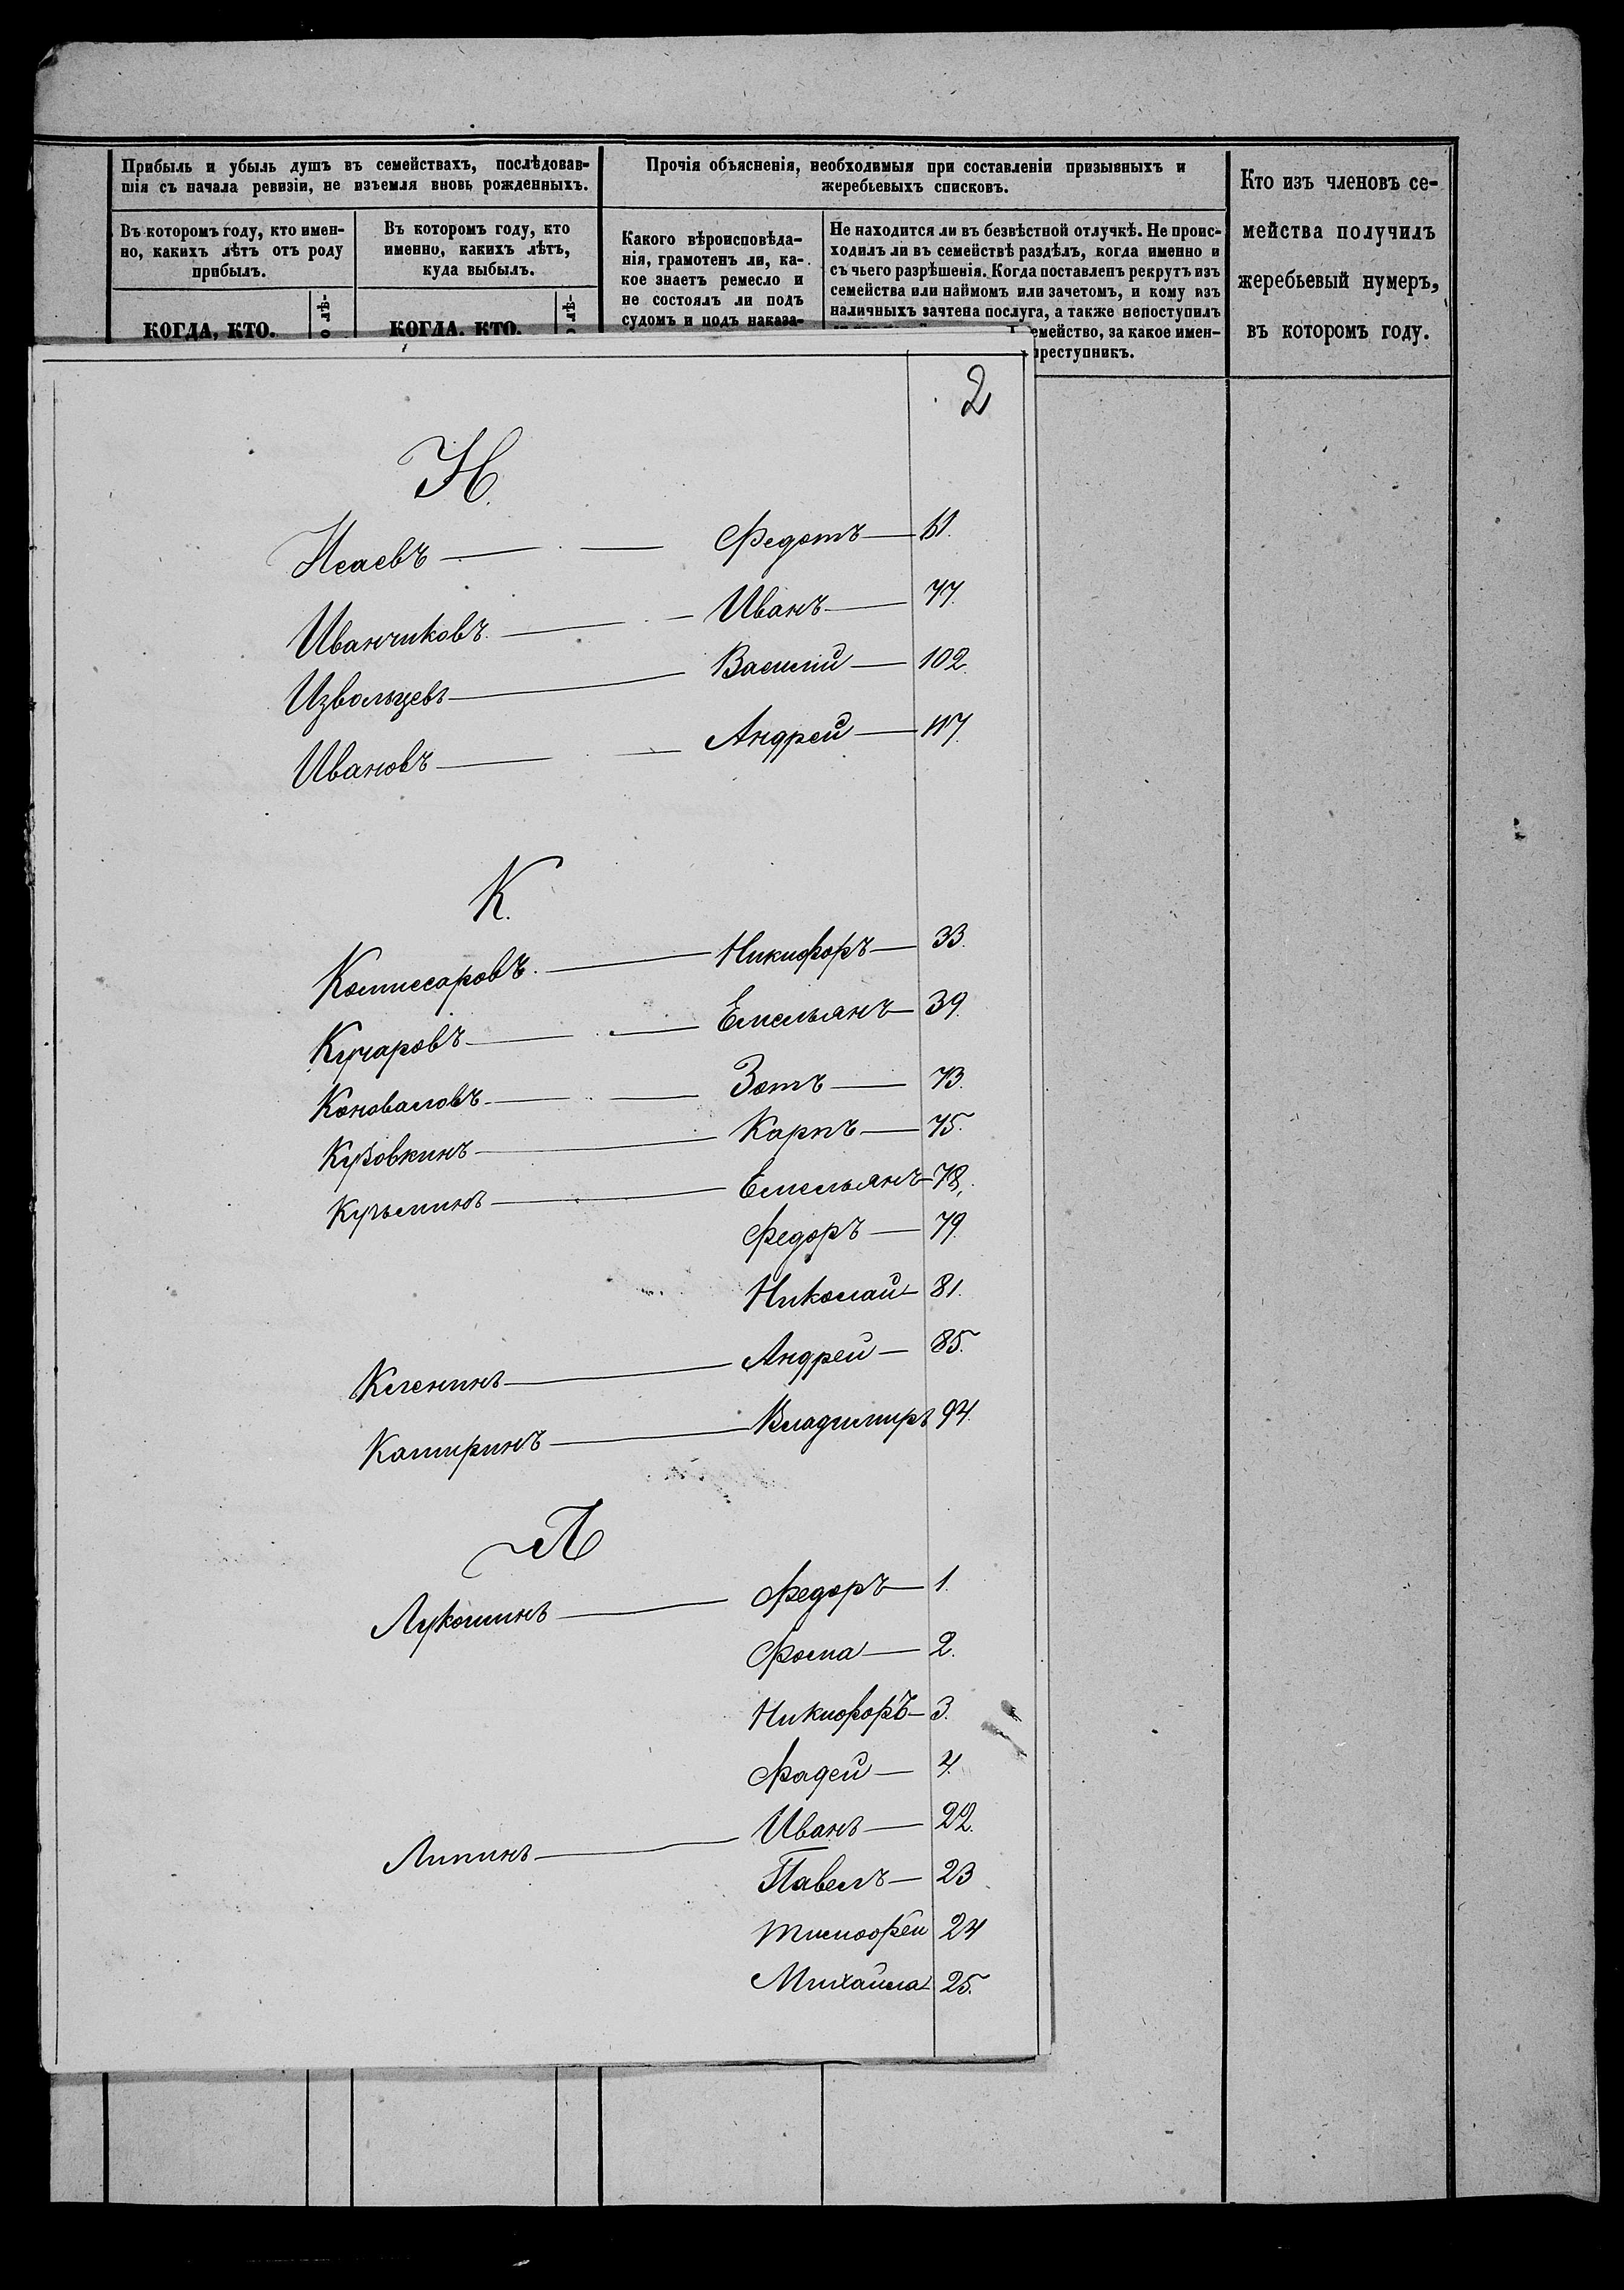 Прибыль и убыль душъ въ семействахъ, послѣдовав-
шія съ начала ревизіи, не изъемля вновь рожденныхъ.
Въ которомъ году, кто имен-
но, какихъ лѣтъ отъ роду
прибылъ.
КОГДА, КТО.
Въ которомъ году, кто
именно, какихъ лѣтъ,
куда выбылъ.
КОГДА, КТО.
Прочія объясненія, необходимыя при составленіи призывныхъ и
жеребьевыхъ списковъ.
Какого вѣроисповѣда-
нія, грамотенъ ли, ка-
кое знаетъ ремесло и
не состоялъ ли подъ
судомъ и подъ наказа-
Не находится ли въ безвѣстной отлучкѣ. Не проис-
ходилъ ли въ семействѣ раздѣлъ, когда именно и
съ чьего разрѣшенія. Когда поставленъ рекрутъ изъ
семейства или наймомъ или зачетомъ, и кому изъ
наличныхъ зачтена послуга, а также непоступилъ
емейство, за какое имен-
преступникъ.
Кто изъ членовъ се-
мейства получилъ
жеребьевый нумеръ,
въ которомъ году.
2
И.
Исаевъ — Федотъ — 61.
Иванчиковъ — Иванъ — 77.
Извольцевъ — Василій — 102.
Ивановъ — Андрей — 117.
К.
Комиссаровъ — Никифоръ — 33.
Кучаровъ — Емельянъ — 39.
Коноваловъ — Зотъ — 73.
Кузовкинъ — Карпъ — 75.
Кузьминъ — Емельянъ — 78.
Федоръ — 79.
Николай — 81.
Кленинъ — Андрей — 85.
Каширинъ — Владимиръ 94.
Л
Лукошинъ — Федоръ — 1.
Фома — 2.
Никифоръ — 3.
Фадей — 4.
Липинъ — Иванъ — 22.
Павелъ — 23
Тимофей 24
Михайла 25.